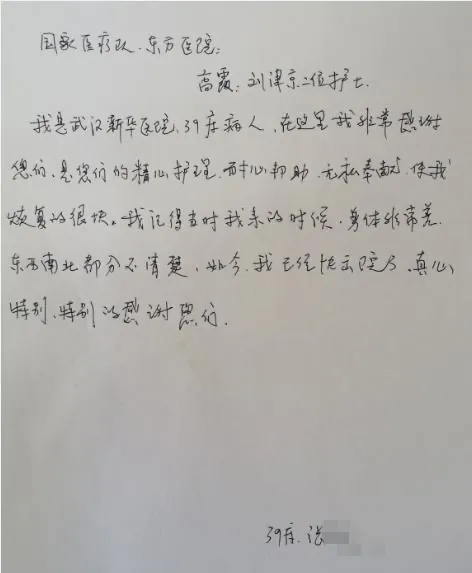 国家医疗队、东方医院:
高霞、刘津京二位护士
我是武汉新华医院,39床病人,在这里我非常感谢
您们,是您们的精心护理、耐心帮助、无私奉献,使我
恢复的很快。我记得当时我来的时候,身体非常差,
东西南北都分不清楚,如今,我已经快出院了,真心
特别、特别的感谢您们.
39床.张